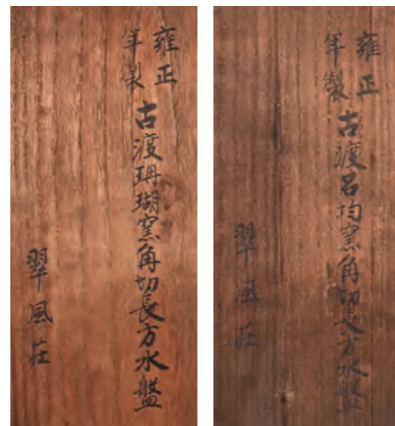 雍正
年製
古渡珊瑚窯角切長方水盤
翠風荘
雍正
年製
古渡呂均窯角切長方水盤
翠風荘